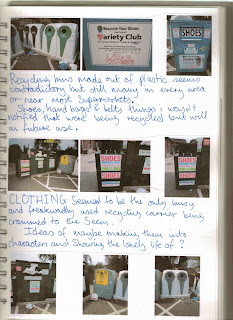 Recycle Your Shoes
Variety Club
SHOES
Recycling bins made out of plastic seems
contradictory but still many in every area
or near most Supermarkets.
Shoes, hand bags & belts, things i wasn't
notified that were being recycled but will
in future use.
SHOES
SHOES
SHOES
CLOTHING Seemed to be the only busy
and frequently used recycling carrier being
crammed to the Seem.
Ideas of maybe making them into
characters and Showing the lonely life of ?